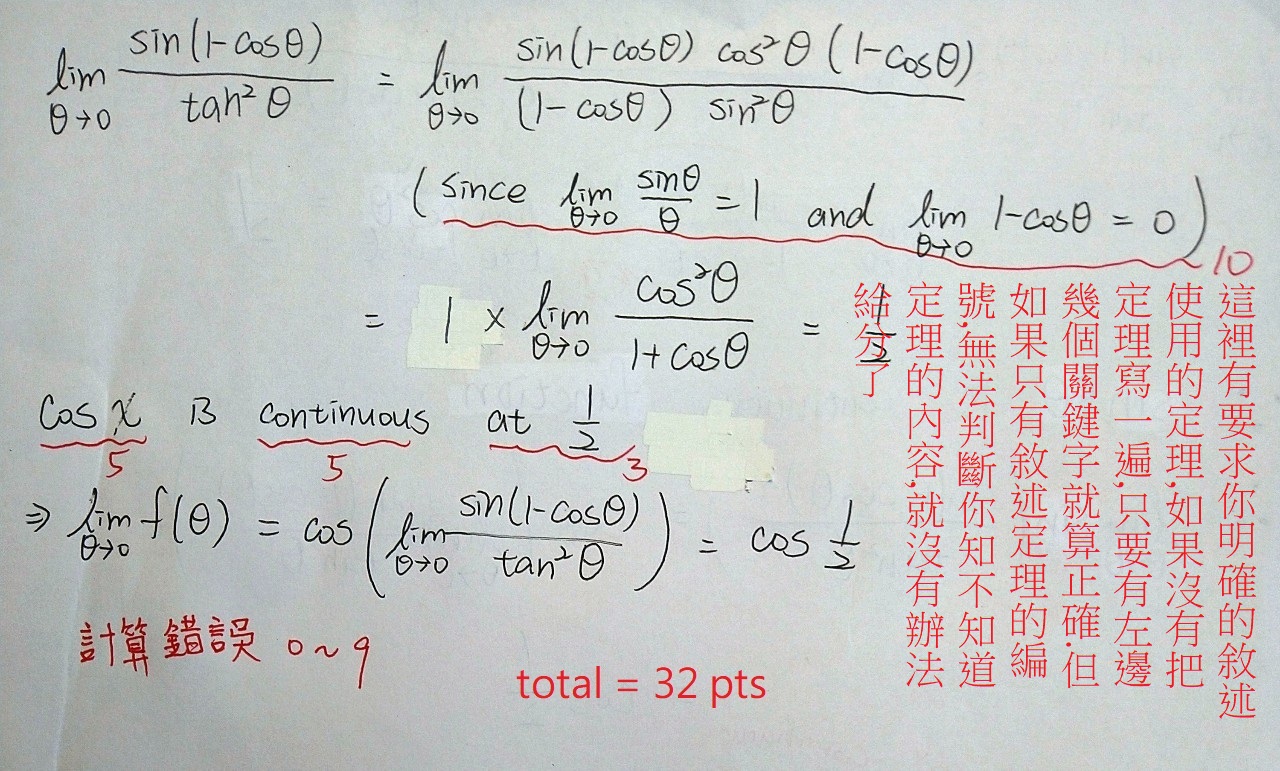 lim θ→0 sin(1-cosθ) / tan²θ = lim θ→0 sin(1-cosθ) cos²θ (1-cosθ) / (1-cosθ) sin²θ
(since lim θ→0 sinθ/θ = 1 and lim θ→0 1-cosθ = 0)
10
= 1 × lim θ→0 cos²θ / 1+cosθ = 1/2
cos x is continuous at 1/2
5 5 3
⇒ lim θ→0 f(θ) = cos( lim θ→0 sin(1-cosθ) / tan²θ ) = cos 1/2
計算錯誤 0~9
total = 32 pts
這裡有要求你明確的敘述
使用的定理,如果沒有把
定理寫一遍,只要有左邊
幾個關鍵字就算正確.但
如果只有敘述定理的編
號,無法判斷你知不知道
定理的內容,就沒有辦法
給分了